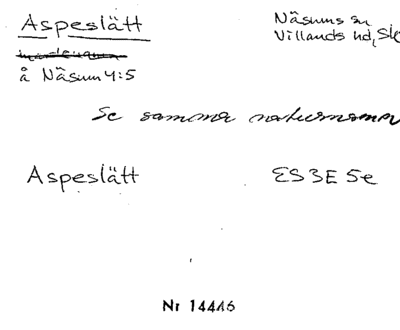 Aspeslätt
Näsums sn
Villands hd, Sk
å Näsum 4:5
Se samma naturnamn
Aspeslätt
ES 3E 5e
Nr 14446